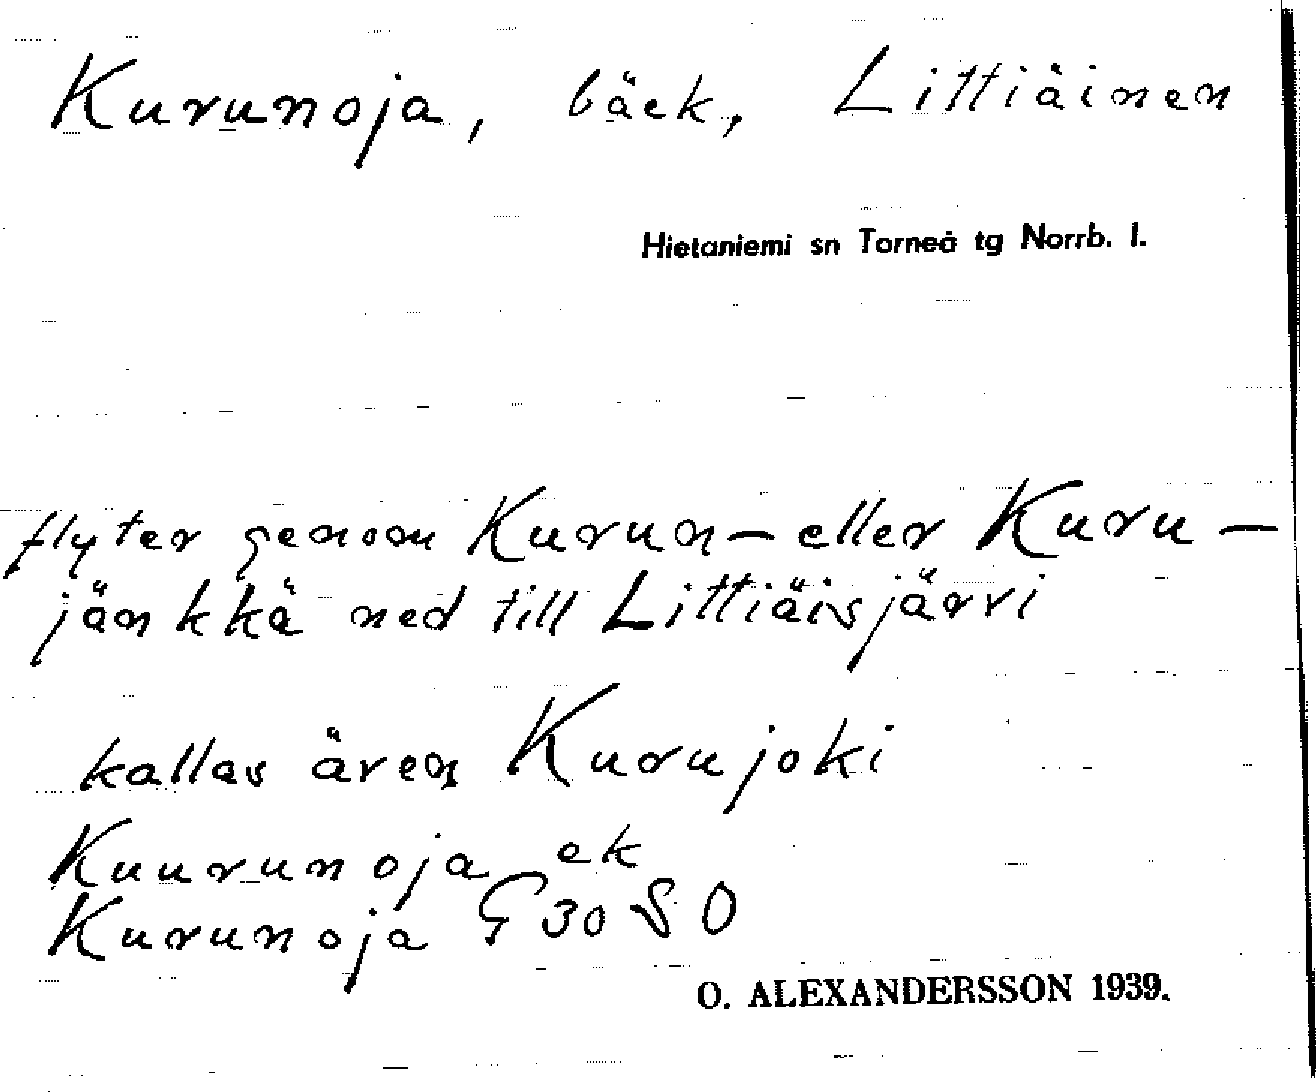 Kurunoja, bäck, Littiäinen
Hietaniemi sn Torneå tg Norrb. l.
flyter genom Kurun- eller Kuru-
jänkkä ned till Littiäisjärvi
kallas även Kurujoki
Kuurunoja ek
Kurunoja G 30 SO
O. ALEXANDERSSON 1939.